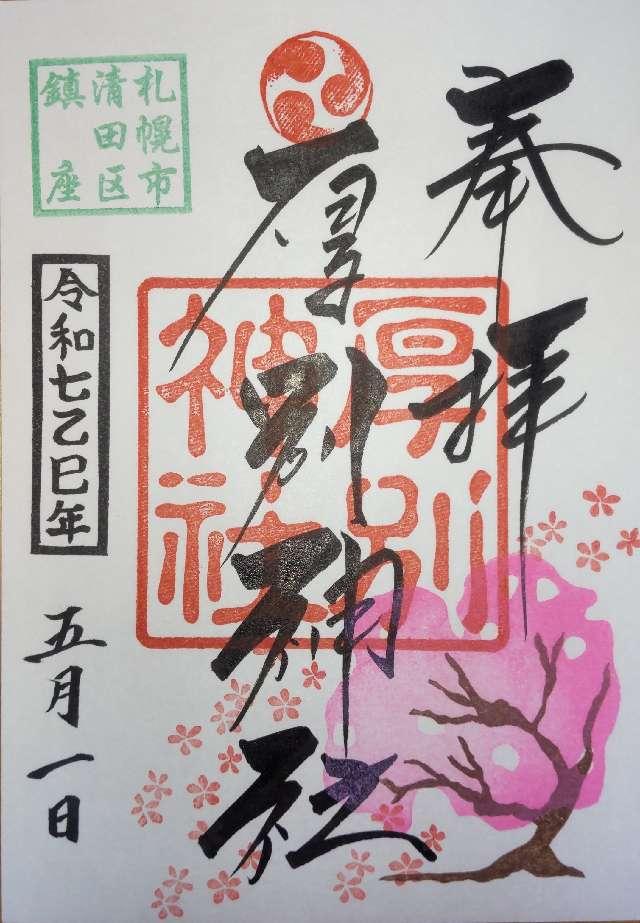 奉拝
厚別神社
厚別
神社
札幌市
清田区
鎮座
令和七乙巳年
五月一日